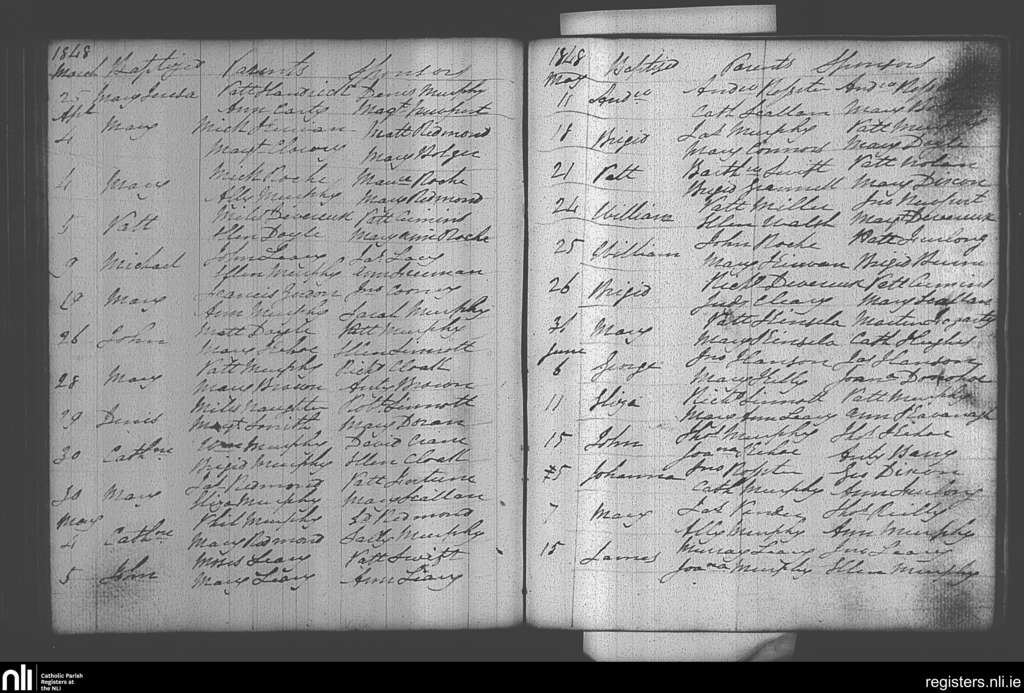 1848
March Baptized Parents Sponsors
25 Mary Teresa Patt Handrick Denis Murphy
Ann Carty Margt Newport
Apl
4 Mary Mich Matt Redmond
Margt Mary Bolger
4 Mary Mich Roche Roche
Ally Murphy Mary Redmond
5 Patt Miles Devereux Patt Cumins
Ellen Doyle Mary Anne Roche
9 Michael John Leary Jas Lacy
Ellen Murphy Ann
19 Mary Francis Jno Cooney
Ann Murphy Sarah Murphy
26 John Matt Doyle Patt Murphy
Mary Kehoe Ellen Sinnott
28 Mary Patt Murphy Richd Cloak
Mary Brown Judy Brown
29 Denis Miles Naughter Robt Sinnott
Margt Smith Mary Doran
30 Cathne Wm Murphy David Crane
Brigid Murphy Ellen Cloak
30 Mary Jas Redmond Patt Fortune
Eliza Murphy Mary Scallan
May
4 Cathne Phil Murphy Ed Redmond
Mary Redmond Sally Murphy
5 John Leary Patt Swift
Mary Leary Ann Leary
1848
May Baptized Parents Sponsors
11 Andw Andw Rossiter Andw
Cath Scallan Mary
18 Brigid Jas Murphy Patt
Mary Connors Mary Doyle
21 Patt Barthw Swift Patt Nolan
Brigid Mary Dixon
24 William Patt Miller Jno Newport
Ellen Walsh Margt Devereux
25 William John Roche Patt Furlong
Mary Brigid
26 Brigid Richd Devereux Patt Cumins
Judy Cleary Mary Scallan
31 Mary Patt Kinsela Martin Fogarty
Mary Kinsela Cath Hughes
June
6 George Jno Hanson Jas Hanson
Mary Kelly Joana Donohoe
11 Eliza Richd Sinnott Patt Murphy
Mary Ann Leary Ann Kavanagh
15 John Thos Murphy Thos Kehoe
Joanna Kehoe Judy Barry
25 Johanna Jno Rossiter Jas Dixon
Cath Murphy Ann Furlong
7 Mary Jas Thos Reilly
Ally Murphy Ann Murphy
15 James Murray Leary Jno Leary
Joana Murphy Ellen Murphy
nli
Catholic Parish
Registers at
the NLI
registers.nli.ie